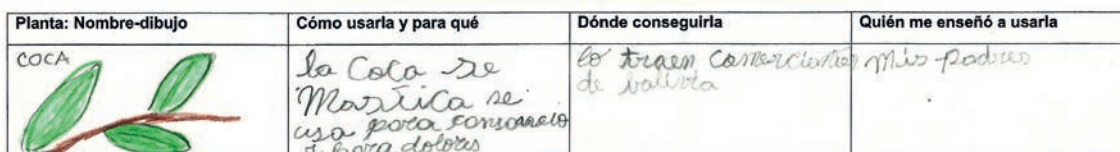 Planta: Nombre-dibujo
Cómo usarla y para qué
Dónde conseguirla
Quién me enseñó a usarla
COCA
la Coca se
Mastica se
usa para
para dolores
lo traen comerciantes
de
Mis padres